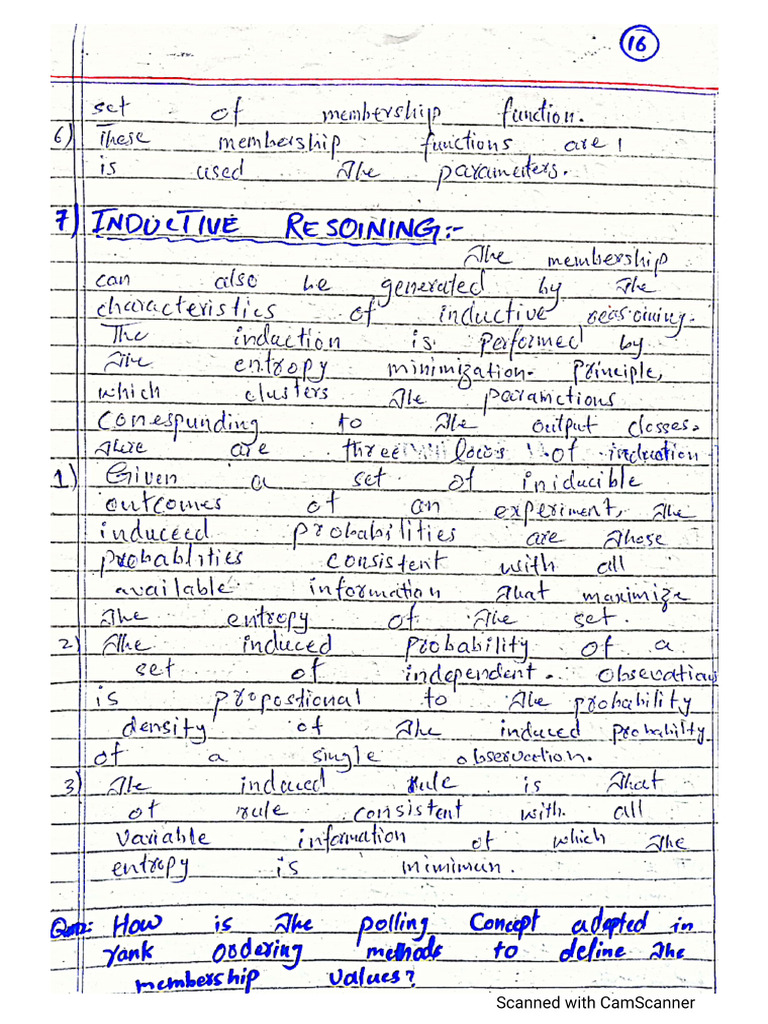 16
set of membership function.
6) These membership functions are
is used the parameters.
7) INDUCTIVE RESOINING:-
The membership
can also be generated by the
characteristics of inductive reasoining.
The induction is performed by
the entropy minimization. principle,
which clusters the paramctions
Conespunding to the output closses.
There are three laws of induction
1) Given a set of iniducible
outcomes of an experiment, the
induceed probabilities are those
probablities consistent with all
available information that maximize
the entropy of the set.
2) The induced probability of a
set of independent. obsevations
is propostional to the probability
density of the induced probabilty
of a single observaction.
3) The induced rule is that
of rule consistent with all
variable information of which the
entropy is mimimun.
How is the polling Concept adapted in
rank ordering methods to define the
membership values?
Scanned with CamScanner